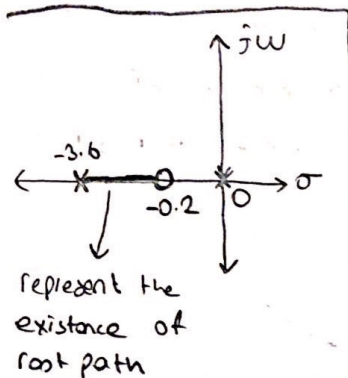 jω
-3.6
σ
-0.2
0
represent the
existence of
root path